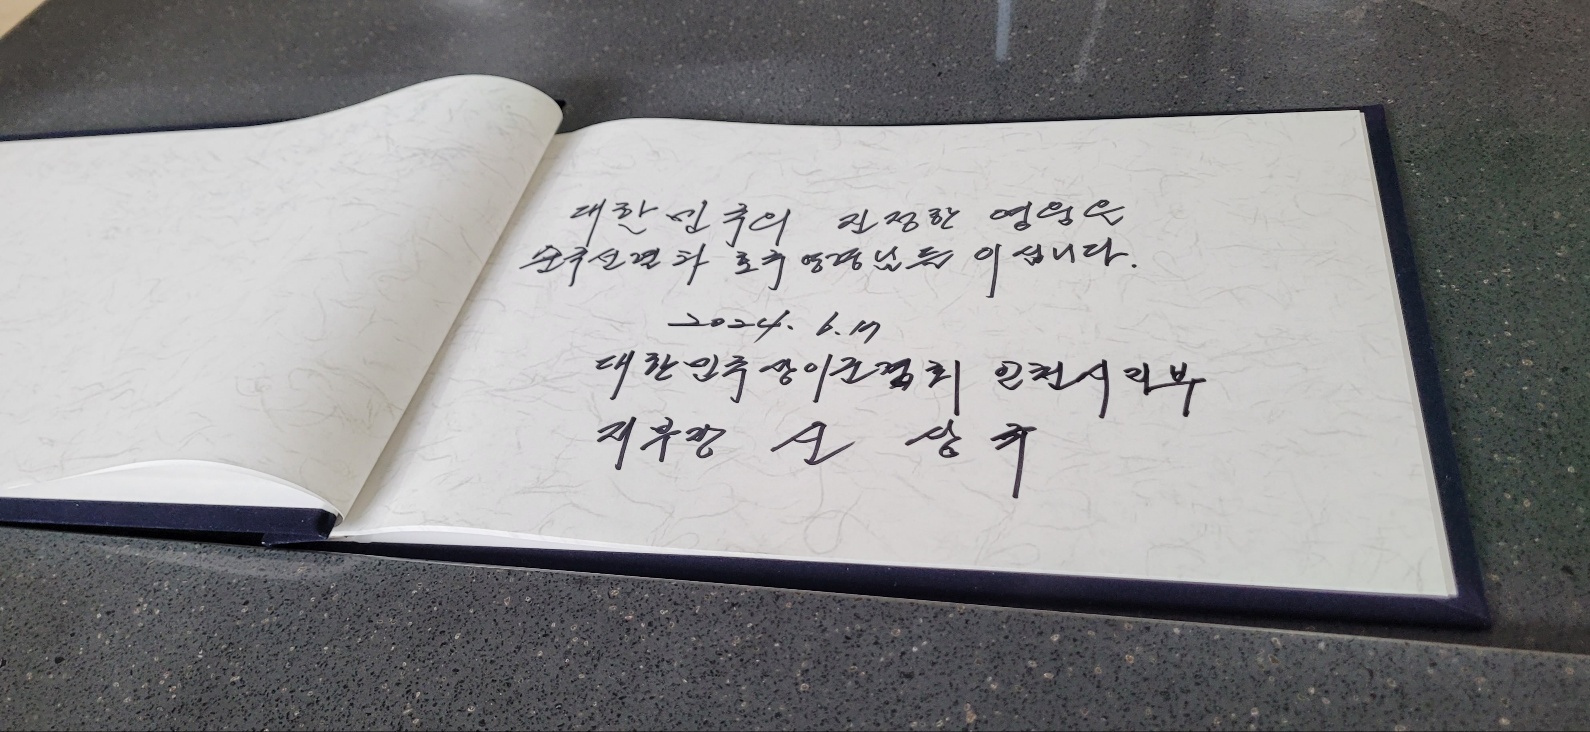 대한민국의 진정한 영웅은
순국선열과 호국영령님들 이십니다.
2024. 6. 17
대한민국상이군경회 인천시지부
지부장 손 상 국